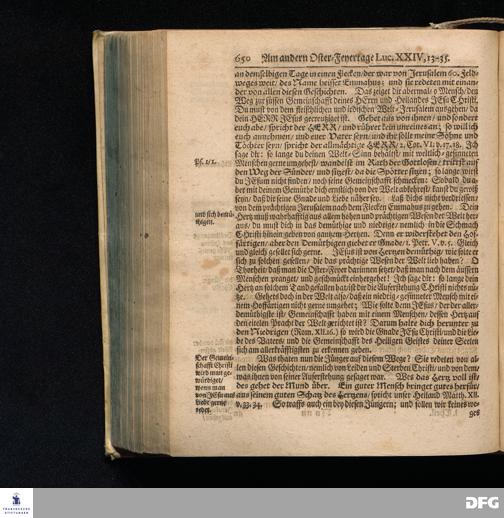 650 Am andern Oster-Feyertage Luc. XXIV, 13-35.
an demselbigen Tage in einen Flecken/ der war von Jerusalem 60. Feld-
weges weit/ des Name heisset Emmahus; und sie redeten mit einan-
der von allen diesen Geschichten. Das zeiget dir abermal/ o Mensch/ den
Weg zur süssen Gemeinschafft deines HErrn und Heilandes JEsu Christi.
Du must von dem fleischlichen und irdischen Welt-Jerusalem ausgehen/ da
dein HERR JEsus gecreutziget ist. Gehet aus von ihnen/ und sondert
euch abe/ spricht der HERR/ und rühret kein unreines an; so will ich
euch annehmen/ und euer Vater seyn/ und ihr sollt meine Söhne und
Töchter seyn/ spricht der allmächtige HERR/ 2. Cor. VI: v. 17. 18. Ich
sage dir: so lange du deinen Welt-Sinn behältst/ mit weltlich-gesinneten
Ps. 1/1.
Menschen gerne umgehest/ wandelst im Rath der Gottlosen/ trittst auf
den Weg der Sünder/ und sitzest/ da die Spötter sitzen; so lange wirst
du JEsum nicht finden/ noch seine Gemeinschafft schmecken: Sobald du a-
ber mit deinem Gemüthe dich ernstlich von der Welt abkehrst/ kanst du gewiß
seyn/ daß dir seine Gnade und Liebe näher sey. Laß dichs nicht verdriessen/
von dem prächtigen Jerusalem nach dem Flecken Emmahus zu gehen. Dein
und sich demü-
thigen.
Hertz muß wahrhafftig aus allem hohen und prächtigen Wesen der Welt her-
aus/ du must dich in das demüthige und niedrige/ nemlich in die Schmach
Christi hinein geben von gantzem Hertzen. Denn er widerstehet den Hof-
färtigen/ aber den Demüthigen giebet er Gnade/ 1. Petr. V, v. 5. Gleich
und gleich gesellet sich gerne. JEsus ist von Hertzen demüthig/ wie solte er
sich zu solchen gesellen/ die das prächtige Wesen der Welt lieb haben? O
Thorheit/ daß man die Oster-Feyer darinnen setzt/ daß man nach dem äussern
Menschen pranget/ und geschmückt einhergehet! Ich sage dir: so lange dein
Hertz an solchem Tand gefallen hat/ ist dir die Auferstehung Christi nicht nü-
tze. Gehets doch in der Welt also/ daß ein niedrig-gesinneter Mensch mit ei-
nem Hoffärtigen nicht gerne umgehet; Wie solte denn JEsus/ der der aller-
demüthigste ist/ Gemeinschafft haben mit einem Menschen/ dessen Hertz auf
den eitelen Pracht der Welt gerichtet ist? Darum halte dich herunter zu
den Niedrigen (Rom. XII. 16.) so wird die Gnade JEsu Christi/ und die Lie-
be des Vaters/ und die Gemeinschafft des Heiligen Geistes deiner Seelen
sich am allerkräfftigsten zu erkennen geben.
Der Gemein-
schafft Christi
wird man ge-
würdiget/
wenn man
von JEsu aus
Liebe gerne
redet.
Was thaten nun die Jünger auf diesem Wege? Sie redeten von al-
len diesen Geschichten/ nemlich von Leiden und Sterben Christi/ und von dem/
was ihnen von seiner Auferstehung gesaget war. Wes das Hertz voll ist/
des gehet der Mund über. Ein guter Mensch bringet gutes herfür/
aus seinem guten Schatz des Hertzens/ spricht unser Heiland Matth. XII.
v. 33. 34. So wars auch ein bey diesen Jüngern; und sollen wir keines we-
ges
FRANCKESCHE STIFTUNGEN
DFG